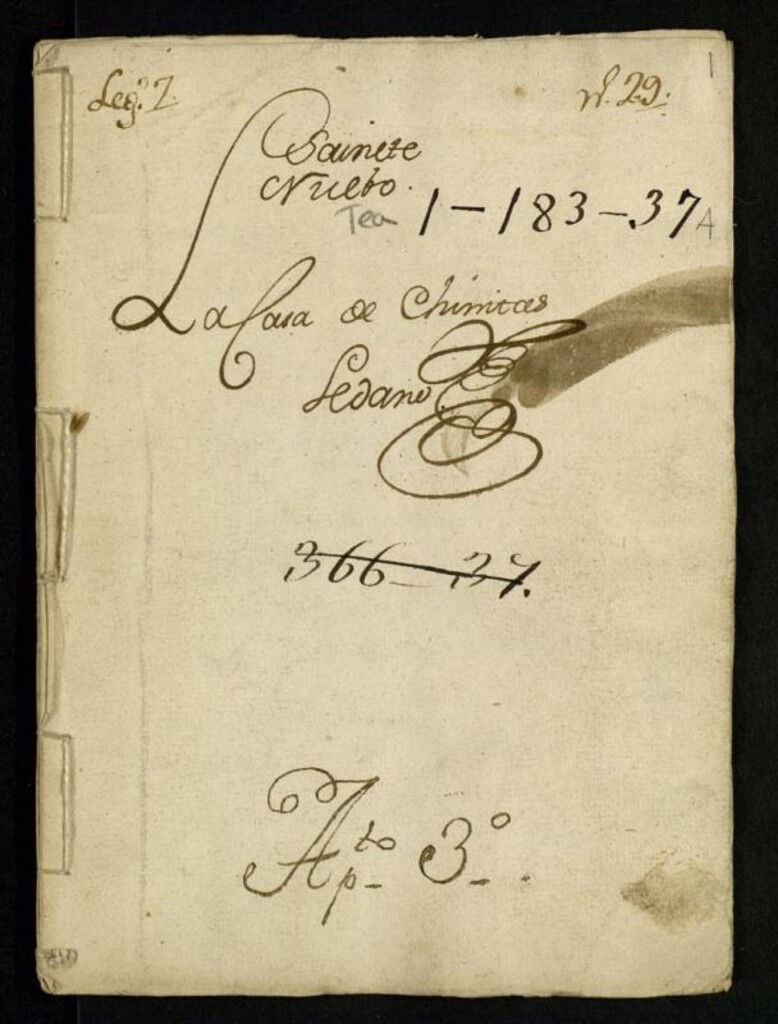 1
Leg.º 7. n.º 29.
Sainete
Nuebo.
Tea 1-183-37
A
La Casa de Chinitas
Ledano
366-37.
Ap.to 3.º